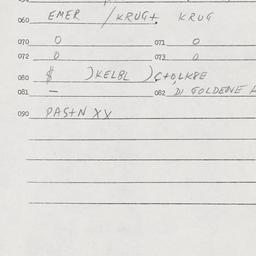 060 EMER / KRUG+ KRUG
070 0 071 0
072 0 073 0
080 $ )KELBL )Ç+OLKPE
081 — 082 DI GOLDENE
090 PAS+N XX